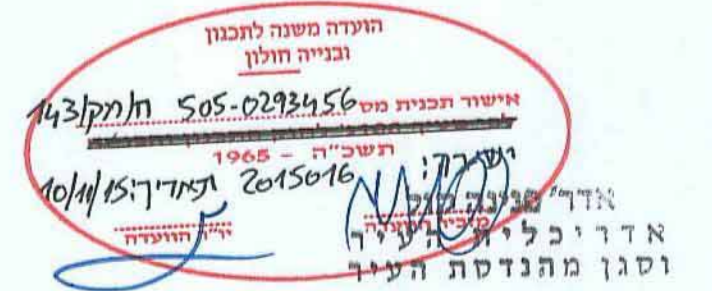 הועדה משנה לתכנון
ובנייה חולון
אישור תכנית מס 505-0293456 ח/מק/143
תשכ"ה - 1965
ישיבה: 2015016 תאריך: 10/11/15
יו"ר הוועדה
אדר' פנינה קול
אדריכלית העיר
וסגן מהנדסת העיר